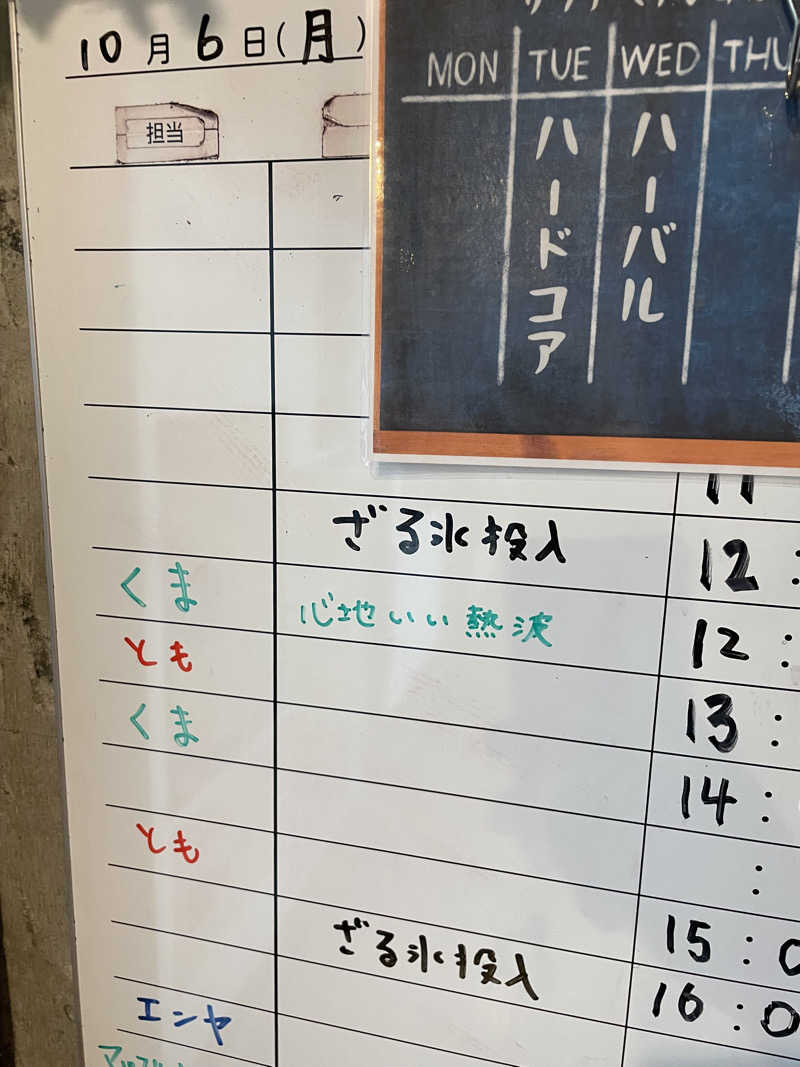 10月6日(月)
担当
MON TUE WED THU
ハードコア
ハーバル
11
ざる氷投入
12:
くま
心地いい熱波
12:
とも
13:
くま
14:
:
とも
15:0
ざる氷投入
16:0
エンヤ